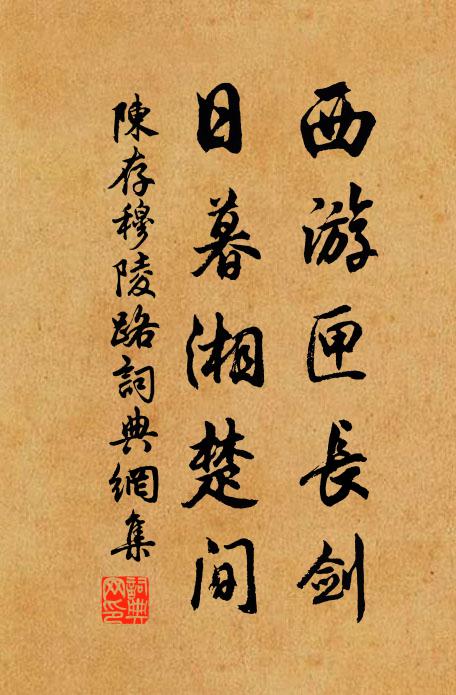 西游匣長剑
日暮湘楚间
陳存穆陵路詞典網集
詞典网印